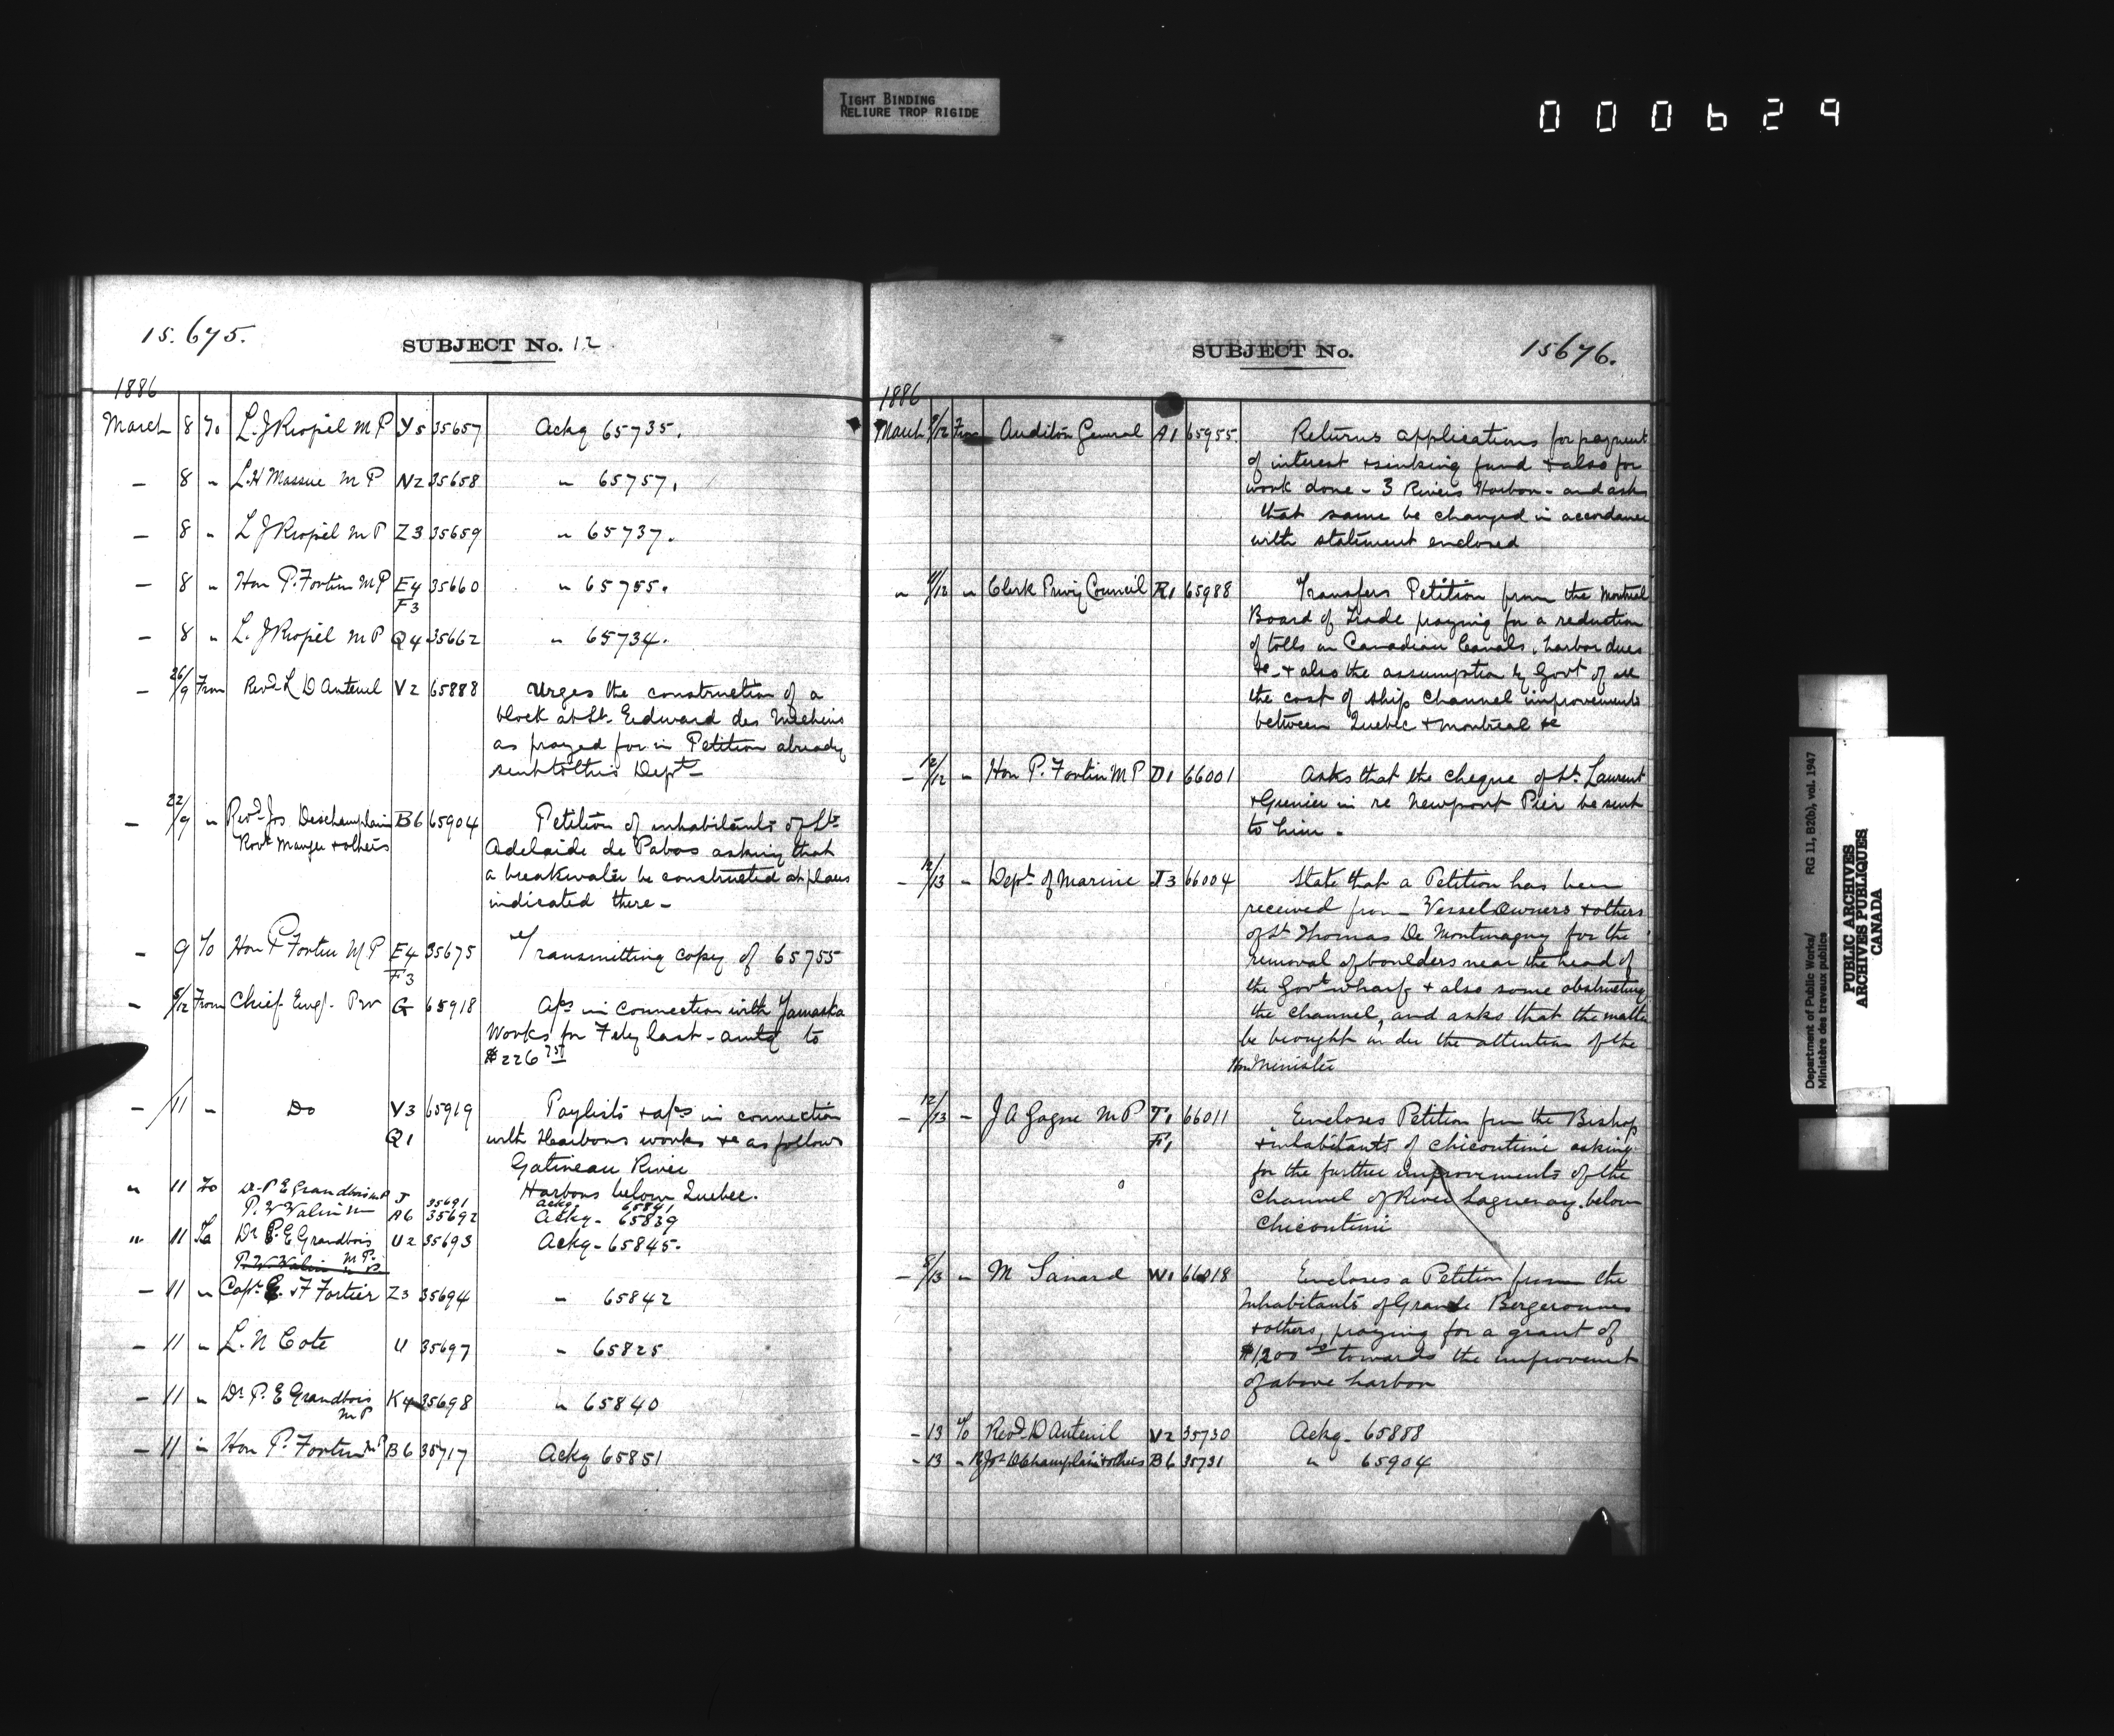 TIGHT BINDING
RELIURE TROP RIGIDE
000629
15.675.
SUBJECT No. 12
1886
March 8 To L. J Riopel M P Y5 35657 Ackg 65735.
— 8 " L. H Massue M P N2 35658 " 65757.
— 8 " L J Riopel M P Z3 35659 " 65737.
— 8 " Hon P. Fortin M P E4 35660 " 65755.
F3
— 8 " L. J Riopel M P Q4 35662 " 65734.
— 26/9 From Revd L D Auteuil V2 65888 Urges the construction of a
block at St. Edward des Mechins
as prayed for in Petition already
sent to this Dept —
— 22/9 " Revd Jos Deschamplain B6 65904 Petition of inhabitants of Ste
Robt Manger & others Adelaide de Pabos asking that
a breakwater be constructed at place
indicated there —
— 9 To Hon P Fortin M P E4 35675 Transmitting copy of 65755
F3
— 8/12 From Chief Engr. P W G 65918 A/cs in connection with Yamaska
Works for Feby last - amtg to
$226
— /11 — Do V3 65919 Paylists & a/cs in connection
Q1 with Harbours works &c as follows
Gatineau River
Harbours below Quebec.
" 11 To Dr P E Grandbois M P J 35691 Ackg. 65841
P. V Valin M A6 35692 Ackg - 65839
" 11 To Dr P. E Grandbois U2 35693 Ackg - 65845.
M P.
P. V Valin M P
— 11 " Capt E. & F Fortier Z3 35694 " 65842
— 11 " L. N Cote U 35697 " 65825
— 11 " Dr P. E Grandbois K4 35698 " 65840
M P
— 11 " Hon P. Fortin M P B6 35717 Ackg 65851
SUBJECT No.
15676.
1886
March 9/12 From Auditor General A1 65955. Returns applications for payment
of interest & sinking fund & also for
work done - 3 Rivers Harbor - and asks
that same be changed in accordance
with statement enclosed
" 11/12 " Clerk Privy Council R1 65988 Transfers Petition from the Montreal
Board of Trade praying for a reduction
of tolls on Canadian Canals, harbor dues
&c - & also the assumption by Govt of all
the cost of ship channel improvements
between Quebec & Montreal &c
— 12/12 — Hon P. Fortin M P D1 66001 Asks that the cheque of St. Laurent
& Grenier in re Newport Pier be sent
to him -
— 12/13 — Dept of Marine J3 66004 State that a Petition has been
received from Vessel Owners & others
of St Thomas De Montmagny for the
removal of boulders near the head of
the Govt wharf & also some obstructing
the channel, and asks that the matter
be brought under the attention of the
Hon Minister
— 12/13 — J A Gagne M P T1 66011 Encloses Petition from the Bishop
F1 & inhabitants of Chicoutimi asking
for the further improvements of the
Channel of River Saguenay below
Chicoutimi
— 8/13 " M Savard W1 66018 Encloses a Petition from the
Inhabitants of Grande Bergeronnes
& others, praying for a grant of
$1,200 towards the improvement
of above harbor
— 13 To Revd D Auteuil V2 35730 Ackg - 65888
— 13 " R Jos Dchamplain & others B6 35731 " 65904
Department of Public Works/
Ministère des travaux publics
RG 11, B2(b), vol. 1947
PUBLIC ARCHIVES
ARCHIVES PUBLIQUES
CANADA